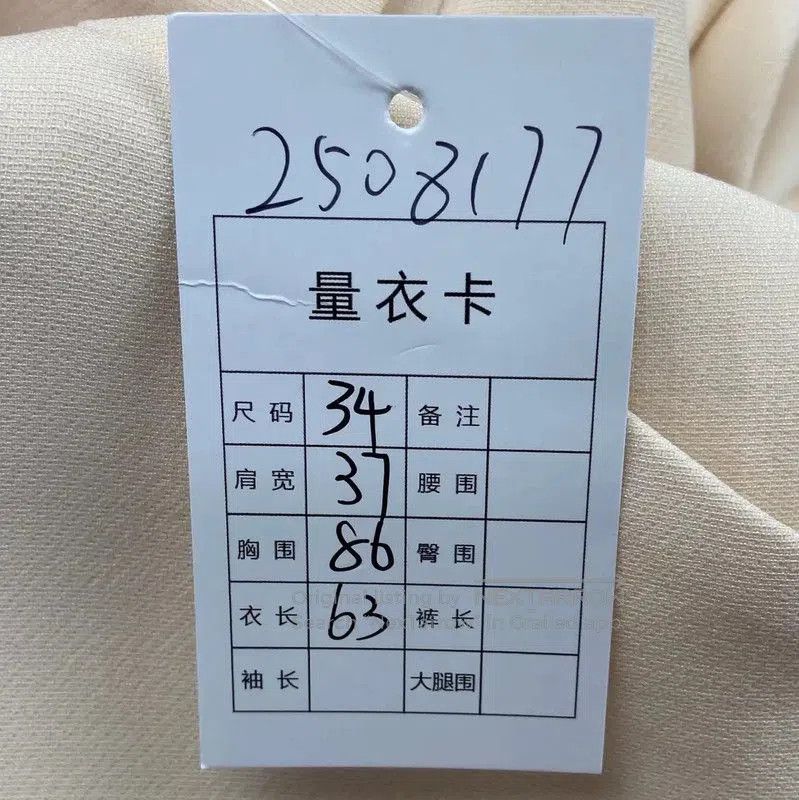 2508177
量衣卡
尺码 34 备注
肩宽 37 腰围
胸围 86 臀围
衣长 63 裤长
袖长 大腿围
Original listing by